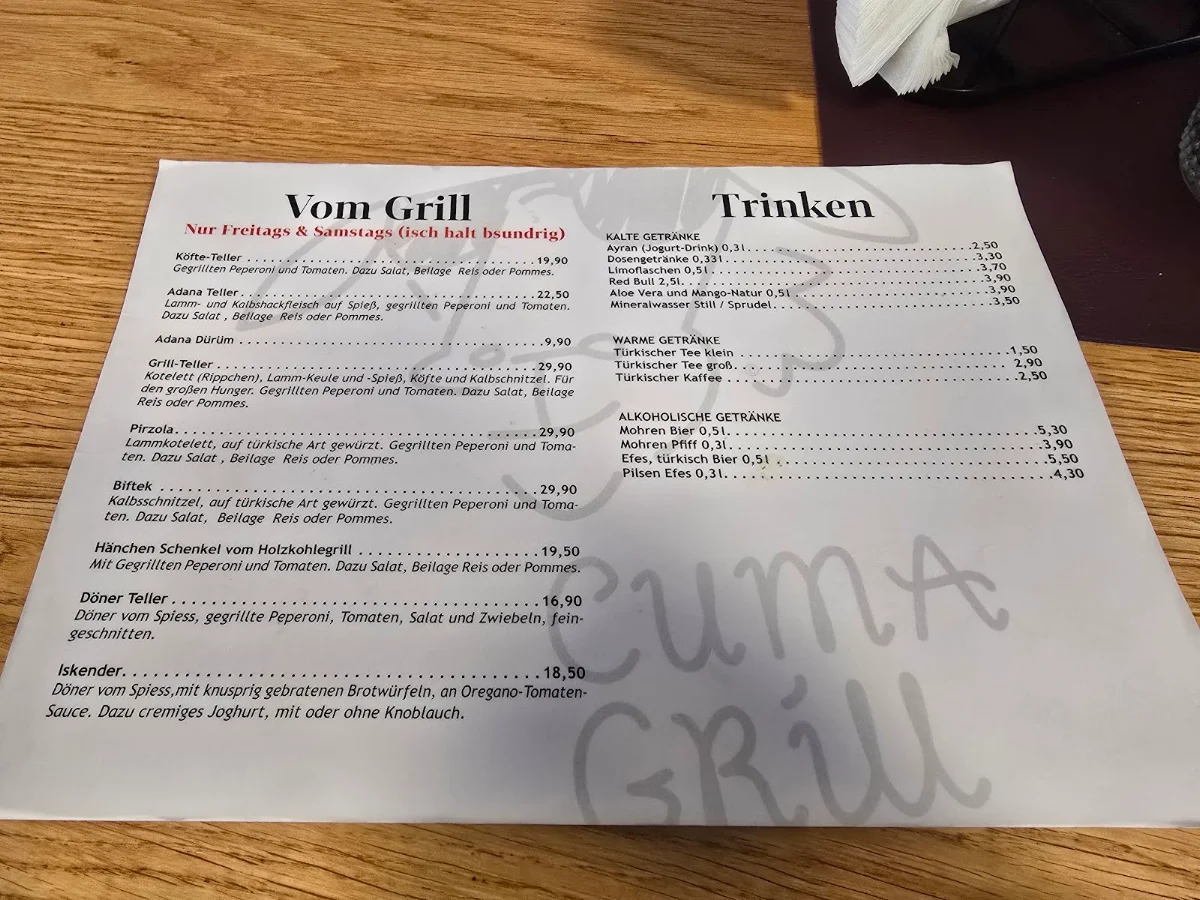 Vom Grill
Nur Freitags & Samstags (isch halt bsundrig)
Köfte-Teller . . . . . . . . . . . . . . . . . . . . 19,90
Gegrillten Peperoni und Tomaten. Dazu Salat, Beilage Reis oder Pommes.
Adana Teller . . . . . . . . . . . . . . . . . . . . 22,50
Lamm- und Kalbshackfleisch auf Spieß, gegrillten Peperoni und Tomaten.
Dazu Salat , Beilage Reis oder Pommes.
Adana Dürüm . . . . . . . . . . . . . . . . . . . . 9,90
Grill-Teller . . . . . . . . . . . . . . . . . . . . 29,90
Kotelett (Rippchen), Lamm-Keule und -Spieß, Köfte und Kalbschnitzel. Für
den großen Hunger. Gegrillten Peperoni und Tomaten. Dazu Salat, Beilage
Reis oder Pommes.
Pirzola . . . . . . . . . . . . . . . . . . . . 29,90
Lammkotelett, auf türkische Art gewürzt. Gegrillten Peperoni und Toma-
ten. Dazu Salat , Beilage Reis oder Pommes.
Biftek . . . . . . . . . . . . . . . . . . . . 29,90
Kalbsschnitzel, auf türkische Art gewürzt. Gegrillten Peperoni und Toma-
ten. Dazu Salat, Beilage Reis oder Pommes.
Hänchen Schenkel vom Holzkohlegrill . . . . . . . . . . . . . . . . . . 19,50
Mit Gegrillten Peperoni und Tomaten. Dazu Salat, Beilage Reis oder Pommes.
Döner Teller . . . . . . . . . . . . . . . . . . . . 16,90
Döner vom Spiess, gegrillte Peperoni, Tomaten, Salat und Zwiebeln, fein-
geschnitten.
Iskender . . . . . . . . . . . . . . . . . . . . 18,50
Döner vom Spiess,mit knusprig gebratenen Brotwürfeln, an Oregano-Tomaten-
Sauce. Dazu cremiges Joghurt, mit oder ohne Knoblauch.
Trinken
KALTE GETRÄNKE
Ayran (Jogurt-Drink) 0,3l . . . . . . . . . . . . . . . . . . . . 2,50
Dosengetränke 0,33l . . . . . . . . . . . . . . . . . . . . 3,30
Limoflaschen 0,5l . . . . . . . . . . . . . . . . . . . . 3,70
Red Bull 2,5l . . . . . . . . . . . . . . . . . . . . 3,90
Aloe Vera und Mango-Natur 0,5l . . . . . . . . . . . . . . . . . . . . 3,90
Mineralwasser Still / Sprudel . . . . . . . . . . . . . . . . . . . . 3,50
WARME GETRÄNKE
Türkischer Tee klein . . . . . . . . . . . . . . . . . . . . 1,50
Türkischer Tee groß . . . . . . . . . . . . . . . . . . . . 2,90
Türkischer Kaffee . . . . . . . . . . . . . . . . . . . . 2,50
ALKOHOLISCHE GETRÄNKE
Mohren Bier 0,5l . . . . . . . . . . . . . . . . . . . . 5,30
Mohren Pfiff 0,3l . . . . . . . . . . . . . . . . . . . . 3,90
Efes, türkisch Bier 0,5l . . . . . . . . . . . . . . . . . . . . 5,50
Pilsen Efes 0,3l . . . . . . . . . . . . . . . . . . . . 4,30
CUMA
GRill